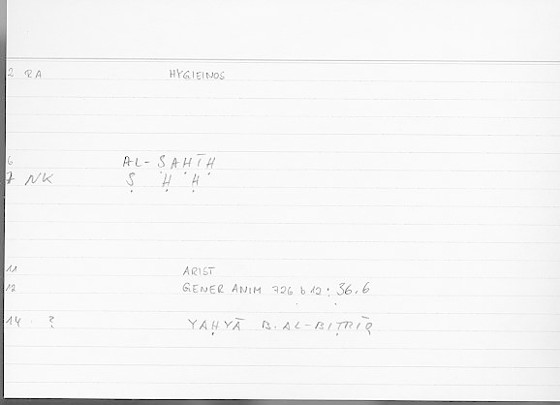 2 RA HYGIEINOS
6 AL-ṢAḤĪḤ
7 NK Ṣ Ḥ Ḥ
11 ARIST
12 GENER ANIM 726 b 12 : 36.6
14 ? YAḤYĀ B. AL-BIṬRĪQ